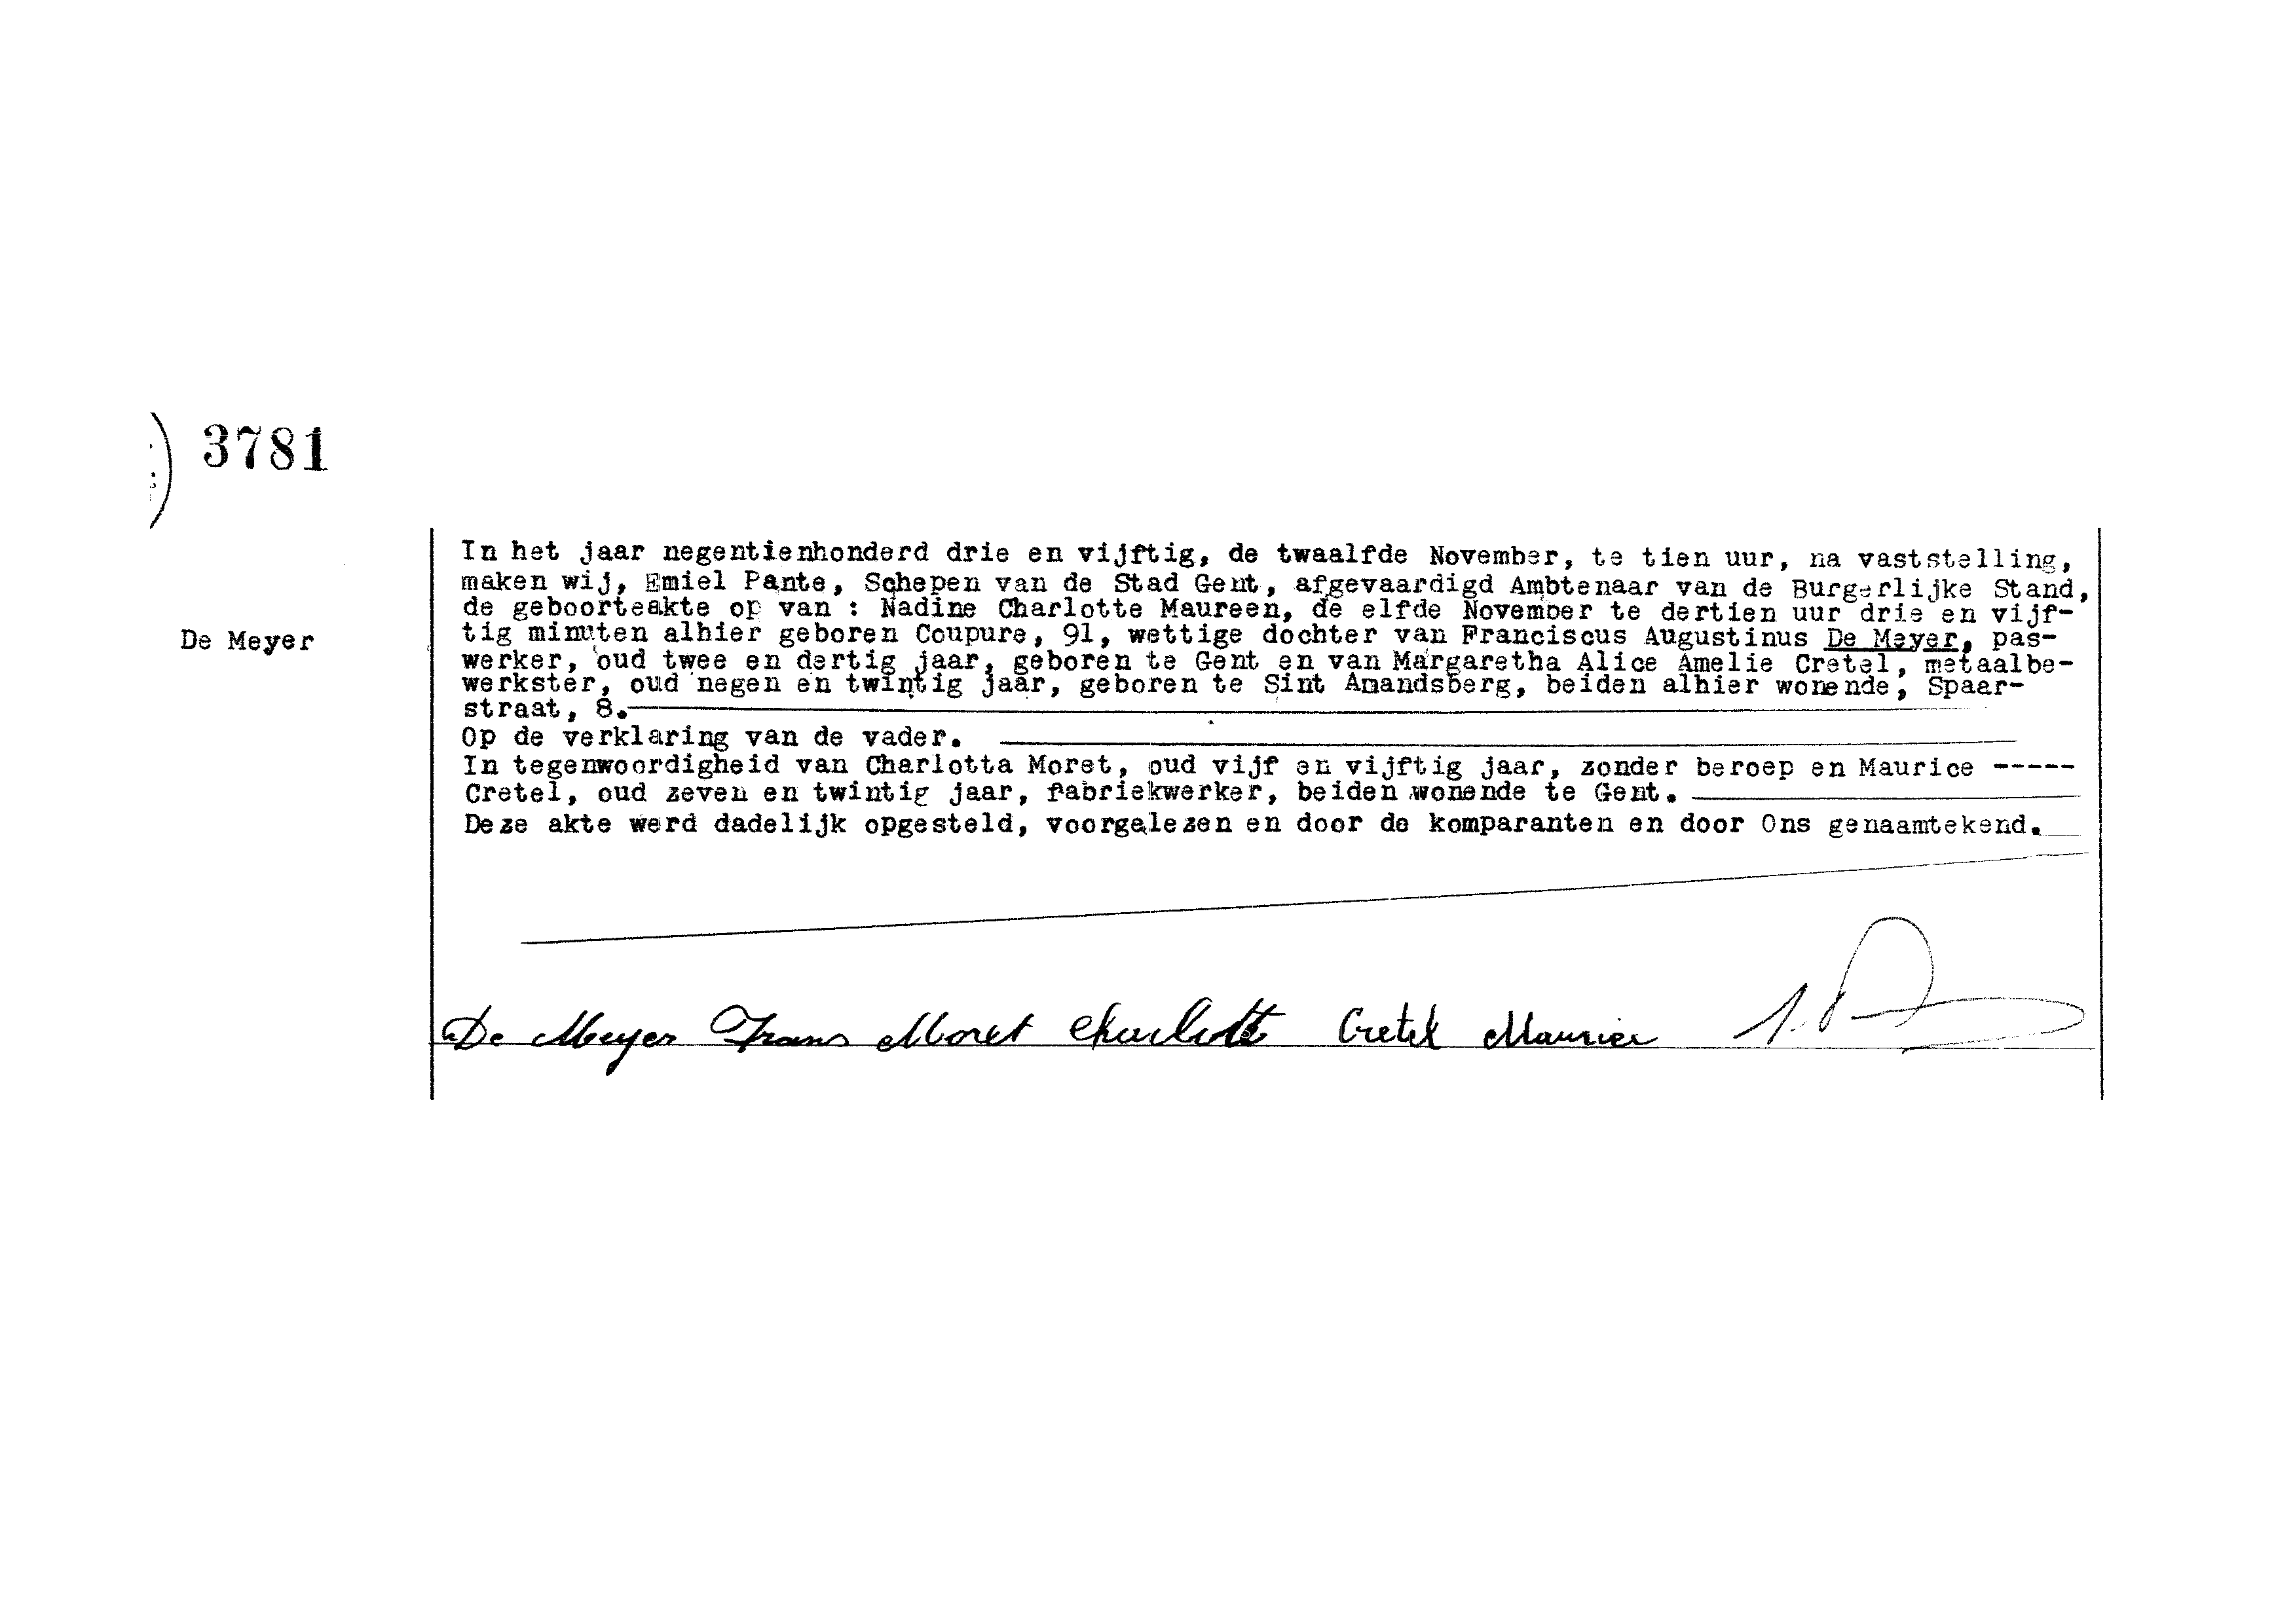 3781
In het jaar negentienhonderd drie en vijftig, de twaalfde November, te tien uur, na vaststelling,
maken wij, Emiel Pante, Schepen van de Stad Gent, afgevaardigd Ambtenaar van de Burgerlijke Stand,
de geboorteakte op van : Nadine Charlotte Maureen, de elfde November te dertien uur drie en vijf-
De Meyer
tig minuten alhier geboren Coupure, 91, wettige dochter van Franciscus Augustinus De Meyer, pas-
werker, oud twee en dertig jaar, geboren te Gent en van Margaretha Alice Amelie Cretel, metaalbe-
werkster, oud negen en twintig jaar, geboren te Sint Amandsberg, beiden alhier wonende, Spaar-
straat, 8.
Op de verklaring van de vader.
In tegenwoordigheid van Charlotta Moret, oud vijf en vijftig jaar, zonder beroep en Maurice -----
Cretel, oud zeven en twintig jaar, fabriekwerker, beiden wonende te Gent.
Deze akte werd dadelijk opgesteld, voorgelezen en door de komparanten en door Ons genaamtekend.
De Meyer Frans Moret Charlotte Cretel Maurice